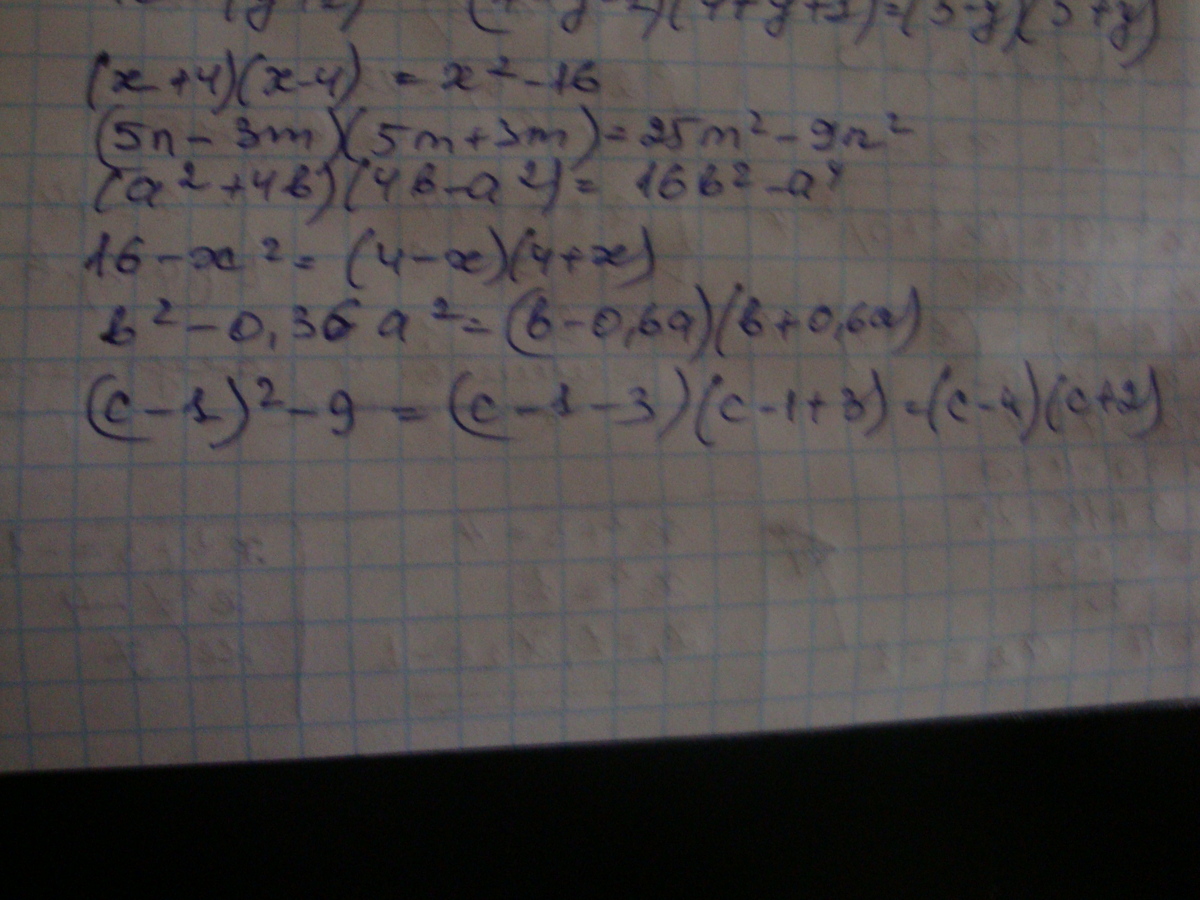 (y+2) (4-y-2)(4+y+2)=(3-y)(5+y)
(x+4)(x-4) = x²-16
(5n-3m)(5m+3m)=25m²-9n²
(a²+4b)(4b-a²)= 16b²-a⁴
16-x²= (4-x)(4+x)
b²-0,36a²=(b-0,6a)(b+0,6a)
(c-1)²-9 = (c-1-3)(c-1+3)=(c-4)(c+2)